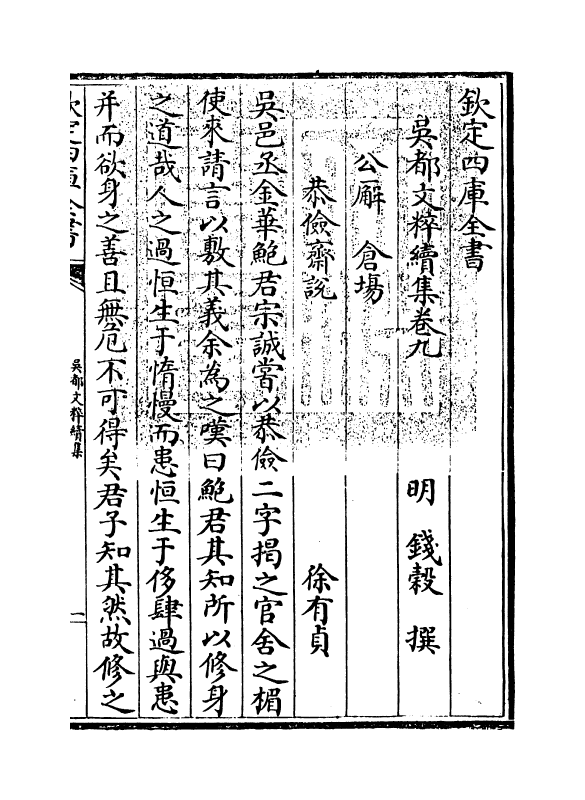 欽定四庫全書
吳都文粹續集卷九
明 錢穀 撰
公廨 倉場
恭儉齋說 徐有貞
吳邑丞金華鮑君宗誠嘗以恭儉二字掲之官舍之楣
使來請言以敷其義余為之嘆曰鮑君其知所以修身
之道哉人之過恒生于惰慢而患恒生于侈肆過與患
并而欲身之善且無危不可得矣君子知其然故修之
欽定四庫全書
吳都文粹續集
一